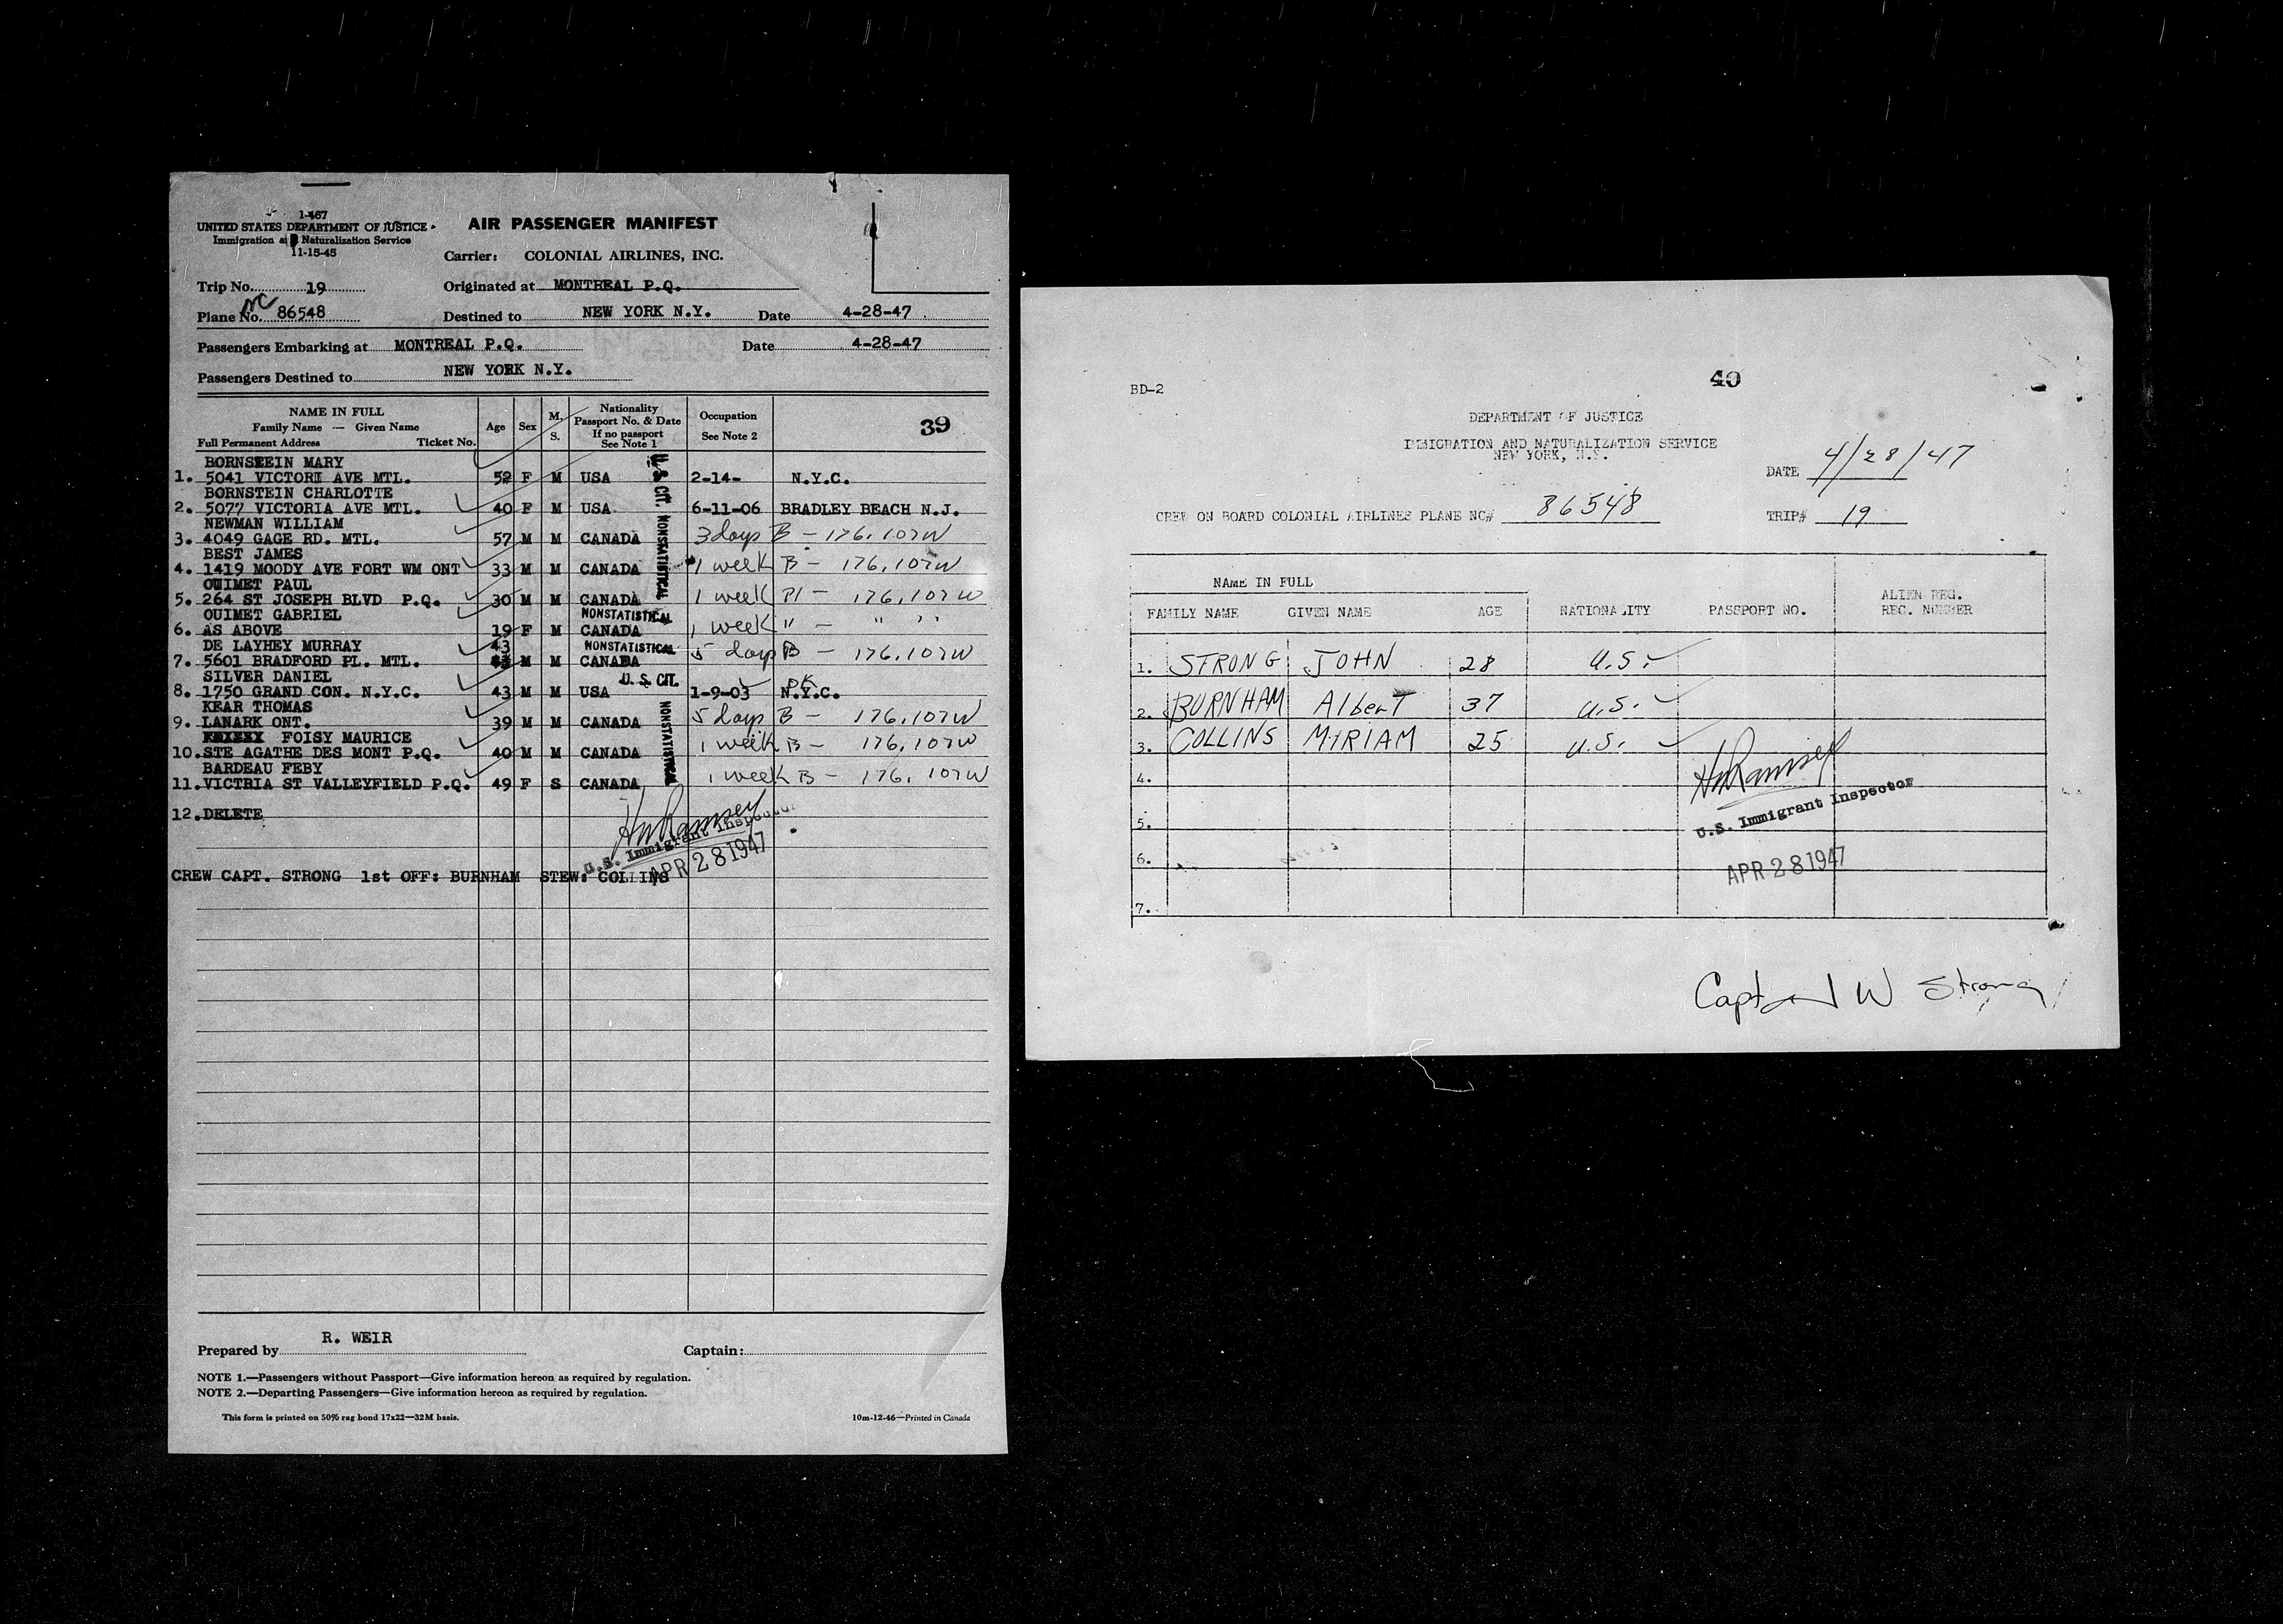 1-467
UNITED STATES DEPARTMENT OF JUSTICE
Immigration and Naturalization Service
11-15-45
AIR PASSENGER MANIFEST
Carrier: COLONIAL AIRLINES, INC.
Trip No. 19
Originated at MONTREAL P.Q.
NC
Plane No. 86548
Destined to NEW YORK N.Y. Date 4-28-47
Passengers Embarking at MONTREAL P.Q. Date 4-28-47
Passengers Destined to NEW YORK N.Y.
NAME IN FULL
Family Name — Given Name
Full Permanent Address Ticket No.
Age Sex M. S.
Nationality
Passport No. & Date
If no passport
See Note 1
Occupation
See Note 2
39
BORNSTEIN MARY
1. 5041 VICTORI AVE MTL. 52 F M USA 2-14- N.Y.C.
BORNSTEIN CHARLOTTE
2. 5077 VICTORIA AVE MTL. 40 F M USA 6-11-06 BRADLEY BEACH N.J.
NEWMAN WILLIAM
3. 4049 GAGE RD. MTL. 57 M M CANADA 3 days B - 176.107W
BEST JAMES
4. 1419 MOODY AVE FORT WM ONT 33 M M CANADA 1 week B - 176.107W
OUIMET PAUL
5. 264 ST JOSEPH BLVD P.Q. 30 M M CANADA 1 week Pl - 176.107W
OUIMET GABRIEL
6. AS ABOVE 19 F M CANADA 1 week " - " "
DE LAYHEY MURRAY 43
7. 5601 BRADFORD PL. MTL. M M CANADA 5 days B - 176.107W
SILVER DANIEL
8. 1750 GRAND CON. N.Y.C. 43 M M USA 1-9-03 N.Y.C. OK
KEAR THOMAS
9. LANARK ONT. 39 M M CANADA 5 days B - 176.107W
FOISY MAURICE
10. STE AGATHE DES MONT P.Q. 40 M M CANADA 1 week B - 176.107W
BARDEAU FEBY
11. VICTRIA ST VALLEYFIELD P.Q. 49 F S CANADA 1 week B - 176.107W
U.S. CIT.
NONSTATISTICAL
NONSTATISTICAL
NONSTATISTICAL
U.S. CIT.
NONSTATISTICAL
12. DELETE
HW Ramsey
U.S. Immigrant Inspector
APR 28 1947
CREW CAPT. STRONG 1st OFF: BURNHAM STEW: COLLINS
R. WEIR
Prepared by
Captain:
NOTE 1.—Passengers without Passport—Give information hereon as required by regulation.
NOTE 2.—Departing Passengers—Give information hereon as required by regulation.
This form is printed on 50% rag bond 17x22—32M basis.
10m-12-46—Printed in Canada
BD-2
40
DEPARTMENT OF JUSTICE
IMMIGRATION AND NATURALIZATION SERVICE
NEW YORK, N.Y.
DATE 4/28/47
CREW ON BOARD COLONIAL AIRLINES PLANE NC# 86548
TRIP# 19
NAME IN FULL
FAMILY NAME GIVEN NAME AGE NATIONALITY PASSPORT NO. ALIEN REG.
REG. NUMBER
1. STRONG JOHN 28 U.S.
2. BURNHAM AlberT 37 U.S.
3. COLLINS MIRIAM 25 U.S.
4.
5.
6.
7.
HW Ramsey
U.S. Immigrant Inspector
APR 28 1947
Capt J W Strong